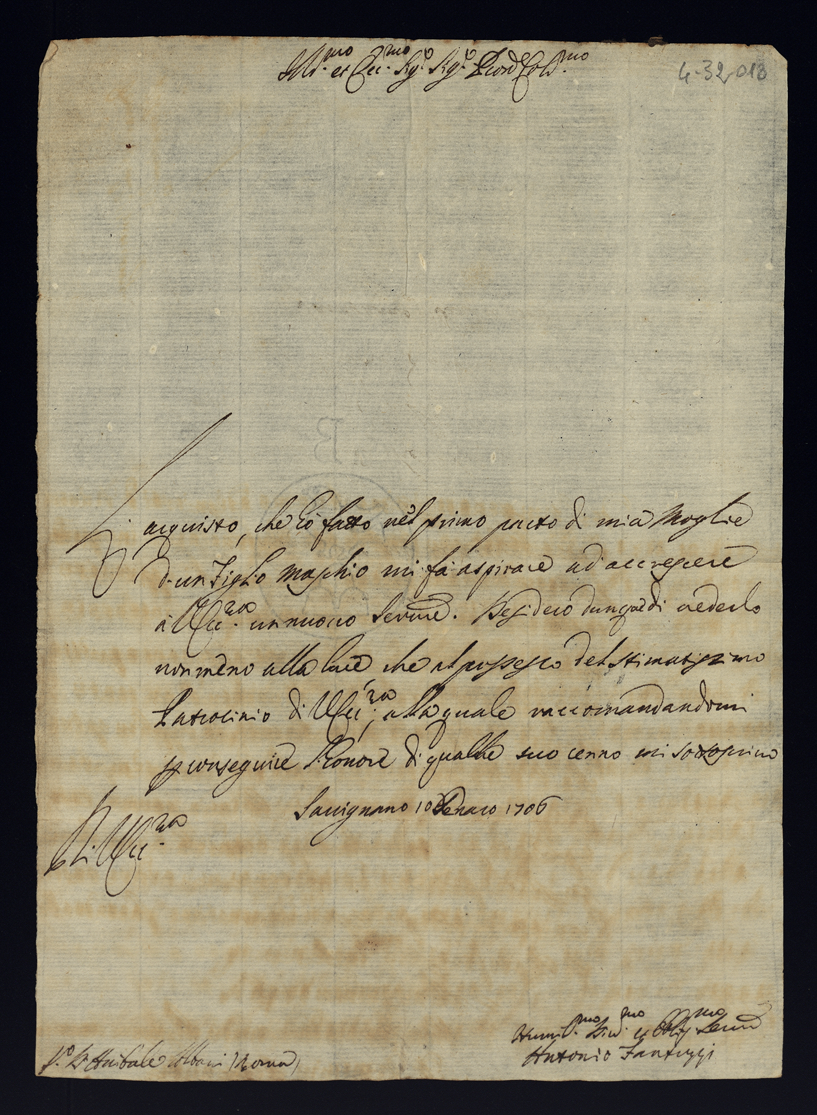 Ill.mo et Ecc.mo Sig.r Sig.r P.ron Col.mo
4-32-018
L'acquisto, che hò fatto nel primo parto di mia Moglie
d'un Figlio Maschio mi fà aspirare ad accrescere
à V. Ecc.za un nuovo Servire. Desidero dunque di vederlo
non meno alla luce che al possesso del stimatissimo
Patrocinio di V. Ecc.za, alla quale raccomandandomi
p conseguire l'honore di qualche suo cenno mi sottoscrivo
Di V. Ecc.za
Savignano 10 Genaro 1706
Humil.mo Div.mo et Oblig.mo Serv.e
Antonio Fantuzzi
D. Anibale Albani (Roma)